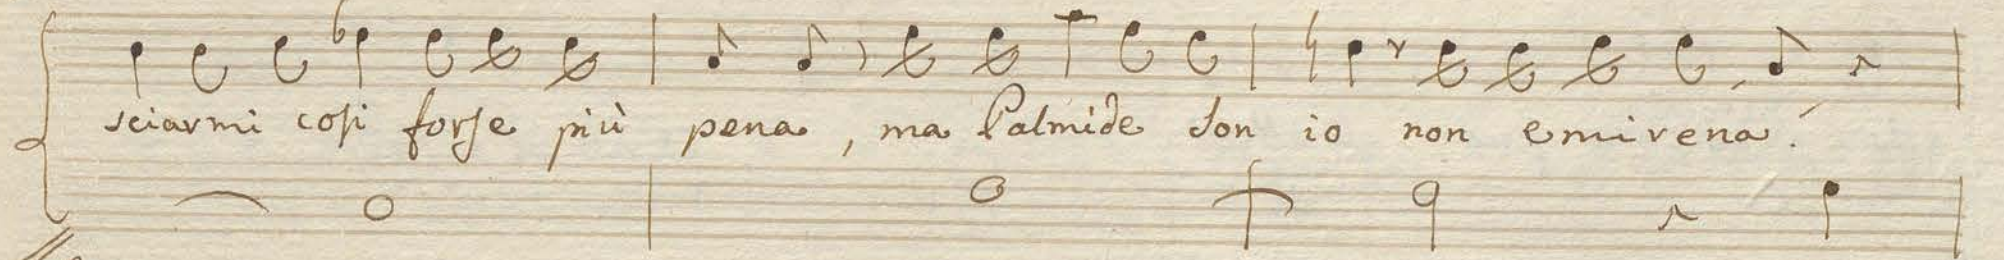 sciarmi cosi forse più pena, ma Palmide son io non emirena.